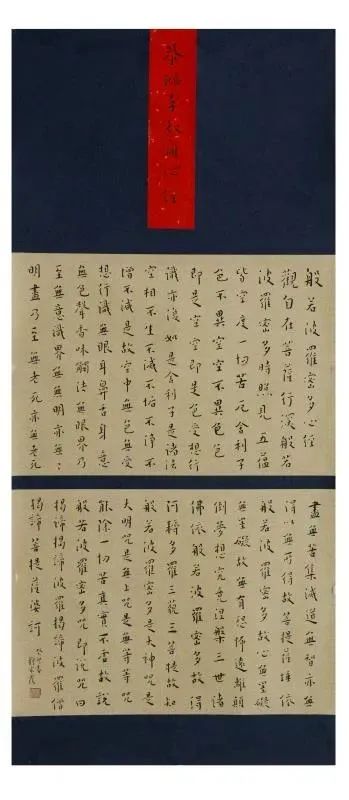 恭臨李叔同心經
般若波羅密多心經
觀自在菩薩行深般若
波羅密多時照見五蘊
皆空度一切苦厄舍利子
色不異空空不異色色
即是空空即是色受想行
識亦復如是舍利子是諸法
空相不生不滅不垢不淨不
增不減是故空中無色無受
想行識無眼耳鼻舌身意
無色聲香味觸法無眼界乃
至無意識界無無明亦無〻
明盡乃至無老死亦無老死
盡無苦集滅道無智亦無
得以無所得故菩提薩埵依
般若波羅密多故心無罣礙
無罣礙故無有恐怖遠離顛
倒夢想究竟涅槃三世諸
佛依般若波羅密多故得
阿耨多羅三藐三菩提故知
般若波羅密多是大神咒是
大明咒是無上咒是無等等咒
能除一切苦真實不虛故說
般若波羅密多咒即說咒曰
揭諦揭諦波羅揭諦波羅僧
揭諦菩提薩婆訶